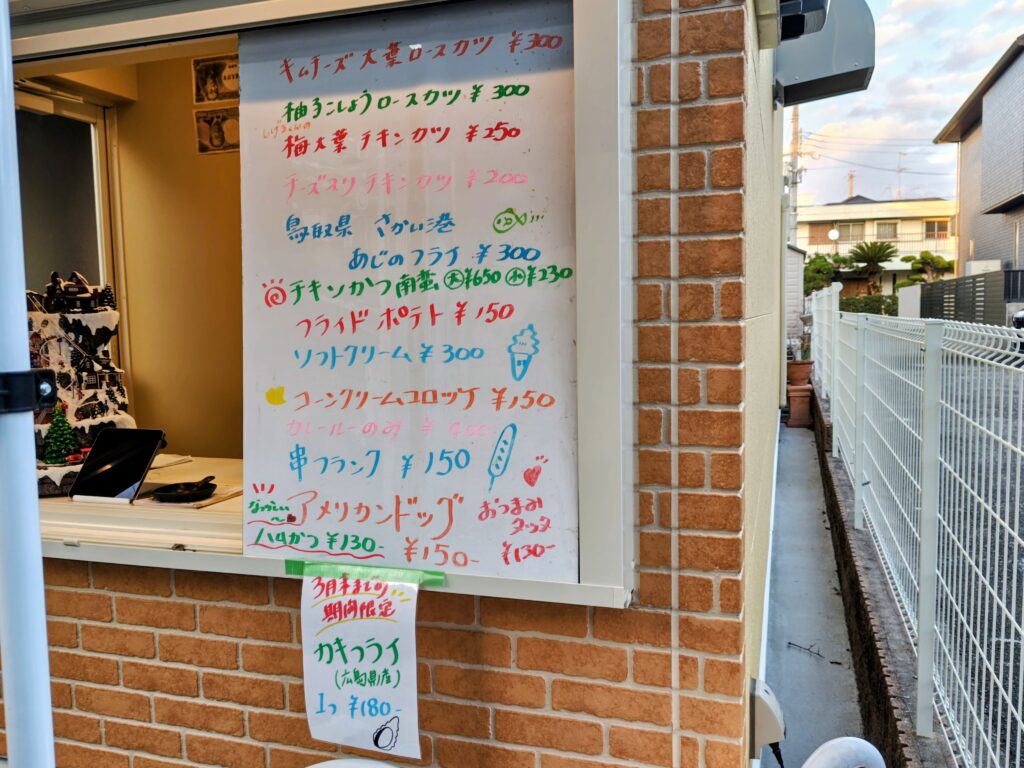 キムチーズ 大葉ロースカツ ¥300
柚子こしょうロースカツ ¥300
梅大葉 チキンカツ ¥250
チーズ入り チキンカツ ¥200
鳥取県 さかい港
あじのフライ ¥300
チキンかつ南蛮 大¥650 小¥230
フライド ポテト ¥150
ソフトクリーム ¥300
コーンクリームコロッケ ¥150
カレールーのみ ¥400
串フランク ¥150
アメリカンドッグ
¥150-
なつかしい〜
ハムかつ ¥130-
おつまみ
¥130-
3月末までの
期間限定
カキフライ
(広島県産)
1つ ¥180-